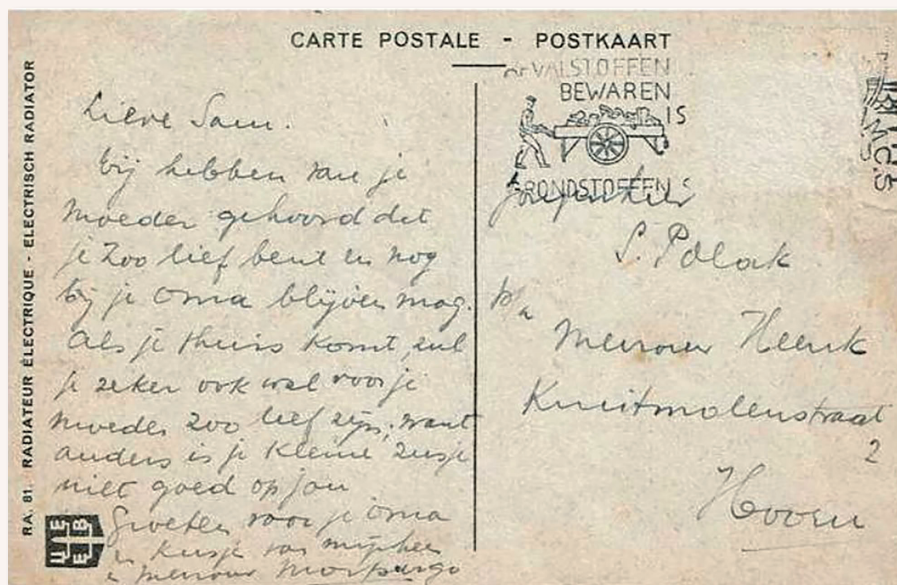 CARTE POSTALE - POSTKAART
RA. 81. RADIATEUR ÉLECTRIQUE - ELECTRISCH RADIATOR
AFVALSTOFFEN
BEWAREN
IS
GRONDSTOFFEN S
Lieve Sam.
Wij hebben van je
moeder gehoord dat
je zoo lief bent en nog
bij je Oma blijven mag.
Als je thuis komt, zul
je zeker ook wel voor je
moeder zoo lief zijn, want
anders is je kleine zusje
niet goed op jou
Groeten voor je Oma
en kusje van mijnheer
en mevrouw Morpurgo
Jongenheer
S. Polak
p/a
Mevrouw Heenk
Kruitmolenstraat
2
Hoorn
UEEB